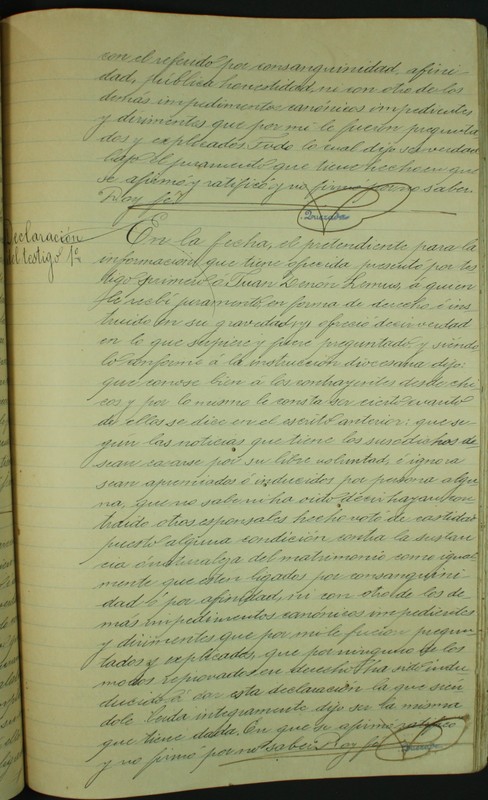 con el referido por consanguinidad, afini-
dad, pública honestidad, ni con otro de los
demás impedimentos canónicos impedientes
y dirimentes que por mi le fueron pregunta-
dos y explicados. Todo lo cual dijo ser verdad
bajo el juramento que tiene hecho en que
se afirmó y ratificó y no firmó por no saber.
Doy fé.
Quezada
Declaración
del testigo 1º
En la fecha, el pretendiente para la
información que tiene ofrecida presentó por tes-
tigo primero á Juan Lemus, á quien
le recibí juramento en forma de derecho é ins-
truido en su gravedad, ofreció decir verdad
en lo que supiere y fuere preguntado y siendo-
lo conforme á la instrucción diocesana dijo:
que conose bien á los contrayentes desde chi-
cos y por lo mismo le consta ser cierto cuanto
de ellos se dise en el escrito anterior: que se-
gún las noticias que tiene los susodichos de-
sean casarse por su libre voluntad, é ignora
sean apremiados ó inducidos por persona algu-
na, que no sabe ni ha oido decir hayan con-
traido otros esponsales hecho voto de castidad
puesto alguna condición contra la sustan-
cia ó naturaleza del matrimonio como igual-
mente que esten ligados por consanguini-
dad ó por afinidad, ni con otro de los de-
mas impedimentos canónicos impedientes
y dirimentes que por mi le fueron pregun-
tados y explicados, que por ninguno de los
modos reprovados en derecho ha sido indu-
cido á dar esta declaración la que sien-
dole leida integramente dijo ser la misma
que tiene dada. En que se afirmó ratificó
y no firmó por no saber. Doy fé.
Quezada